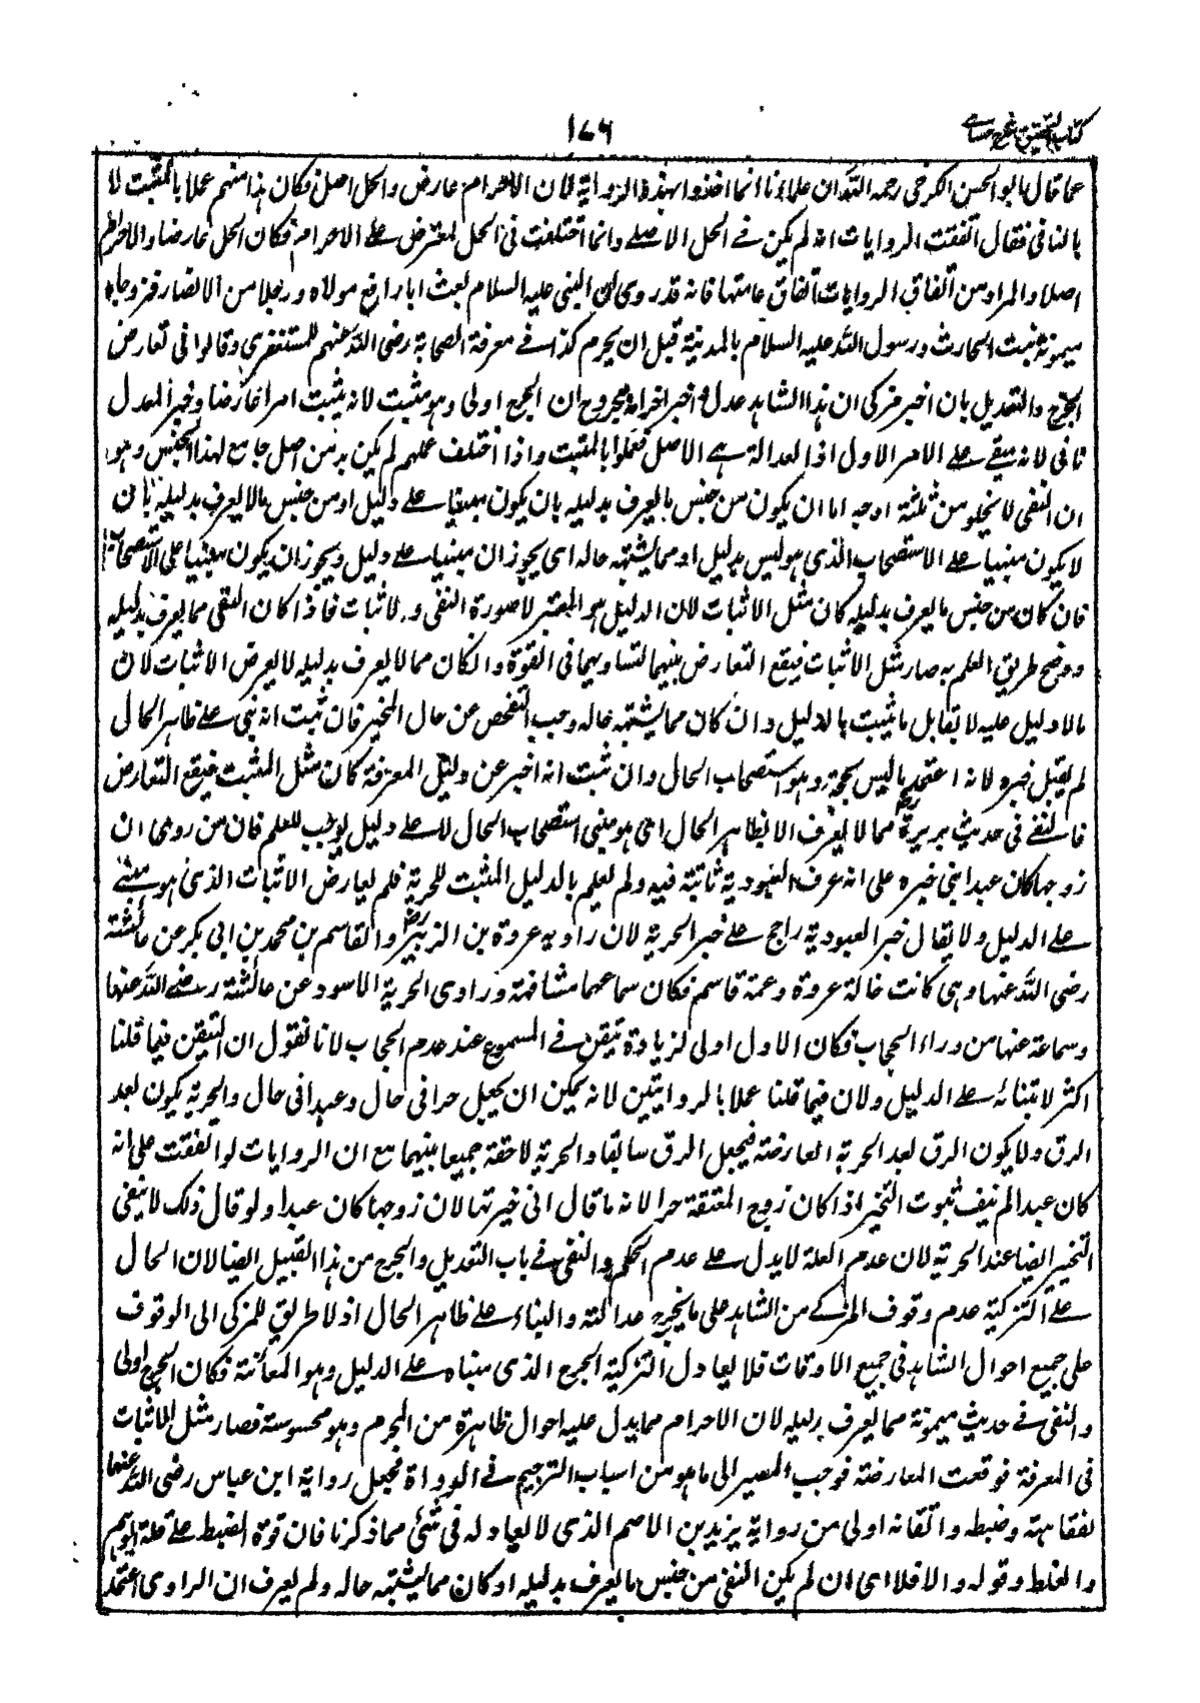 كتاب التحقيق شرح حسامي
١٧٦
عما قال ابو الحسن الكرخي رحمه الله ان علماءنا انما اخذوا بهذه الرواية لان الاحرام عارض والحل اصل فكان هذا منهم عملا بالمثبت لا
بالنافي فقال اتفقت الروايات انه لم يكن في الحل الاصلي وانما اختلفت في الحل المعترض على الاحرام فكان الحل عارضا والاحرام
اصلا والمراد من اتفاق الروايات اتفاق عامتها فانه قد روي ان النبي عليه السلام بعث ابا رافع مولاه ورجلا من الانصار فزوجاه
ميمونة بنت الحارث ورسول الله عليه السلام بالمدينة قبل ان يحرم كذا في معرفة الصحابة رضى الله عنهم للمستغفري وقالوا في تعارض
الجرح والتعديل بان اخبر مزكي ان هذا الشاهد عدل و اخبر اخر انه مجروح ان الجرح اولى وهو مثبت لانه يثبت امرا عارضا وخبر المعدل
نافي لانه مبقي على الامر الاول اذ العدالة هي الاصل فعملوا بالمثبت واذا اختلف عملهم لم يكن بد من اصل جامع لهذا الجنس وهو
ان النفي لا يخلو من ثلثة اوجه اما ان يكون من جنس ما يعرف بدليله بان يكون مبنيا على دليل او من جنس ما لا يعرف بدليله بان
لا يكون مبنيا على الاستصحاب الذي هو ليس بدليل او مما يشتبه حاله اى يجوز ان مبنيا على دليل ويجوز ان يكون مبنيا على الاستصحاب
فان كان من جنس ما يعرف بدليله كان مثل الاثبات لان الدليل هو المعتبر لا صورة النفي و لاثبات فاذا كان النفي مما يعرف بدليله
ووضح طريق العلم به صار مثل الاثبات فيقع التعارض بينهما لتساويهما في القوة والكان مما لا يعرف بدليله لا يعرض الاثبات لان
مالا دليل عليه لا يقابل ما يثبت بالدليل وان كان مما يشتبه حاله وجب التفحص عن حال المخبر فان ثبت انه بنى على ظاهر الحال
لم يقبل خبره لانه اعتمد ما ليس بحجة وهو استصحاب الحال وان ثبت انه اخبر عن دليل المعرفة كان مثل المثبت فيقع التعارض
فالنفي في حديث بريرة رض مما لا يعرف الا بظاهر الحال اى هو مبني استصحاب الحال لا على دليل يوجب للعلم فان من روى ان
زوجها كان عبدا بنى خبره على انه عرف العبودية ثابتة فيه ولم يعلم بالدليل المثبت للحرية فلم يعارض الاثبات الذي هو مبني
على الدليل ولا يقال خبر العبودية راجح على خبر الحرية لان راويه عروة بن الزبير رض والقاسم بن محمد بن ابى بكر عن عائشة
رضى الله عنها وهي كانت خالة عروة وعمة قاسم فكان سماعهما مشافهة وراوى الحرية الاسود عن عائشة رضى الله عنها
وسماعه عنها من وراء الحجاب فكان الاول اولى لزيادة تيقن في المسموع عند عدم الحجاب لانا نقول ان التيقن فيما قلنا
اكثر لابتنائه على الدليل ولان فيما قلنا عملا بالروايتين لانه يمكن ان يجعل حرا في حال وعبدا في حال والحرية يكون بعد
الرق ولا يكون الرق بعد الحرية العارضة فيجعل الرق سابقا والحرية لاحقة جميعا بينهما مع ان الروايات لو اتفقت على انه
كان عبدا لم ينف ثبوت التخير اذا كان زوج المعتقة حرا لانه ما قال انى خيرتها لان زوجها كان عبدا ولو قال ذلك لا ينفي
التخير ايضا عند الحرية لان عدم العلة لا يدل على عدم الحكم والنفي في باب التعديل والجرح من هذا القبيل ايضا لان الحال
على التزكية عدم وقوف المزكے من الشاهد على ما يجرح عدالته والبناء على ظاهر الحال اذ لا طريق للمزكى الى الوقوف
على جميع احوال الشاهد في جميع الاوقات فلا يعادل التزكية الجرح الذي مبناه على الدليل وهو المعائنة فكان الجرح اولى
والنفي في حديث ميمونة مما يعرف بدليله لان الاحرام مما يدل عليه احوال ظاهرة من المحرم وهو محسوسة فصار مثل الاثبات
في المعرفة فوقعت المعارضة فوجب المصير الى ما هو من اسباب الترجيح في الرواة فجعل رواية ابن عباس رضى الله عنهما
لفقاهته وضبطه واتقانه اولى من رواية يزيد بن الاصم الذى لا يعادله في شئ مما ذكرنا فان قوة الضبط على قلة الوهم
والغلط وقوله والافلا اى ان لم يكن النفي من جنس ما يعرف بدليله او كان مما يشتبه حاله ولم يعرف ان الراوى اعتمد